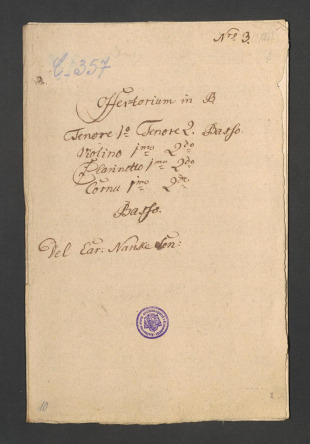 Nro 3.
C-357
Offertorium in B
Tenore 1o Tenore 2. Basso.
Violino 1mo 2do
Clarinetto 1mo 2do
Cornu 1mo 2do.
Basso.
Del Car: Nanke
10